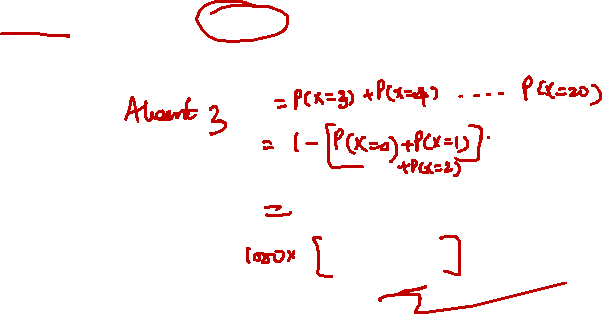 Atleast 3 = P(X=3) + P(X=4) ..... P(X=20)
= 1 - [P(X=0) + P(X=1)
+ P(X=2)]
=
1000 x [ ]